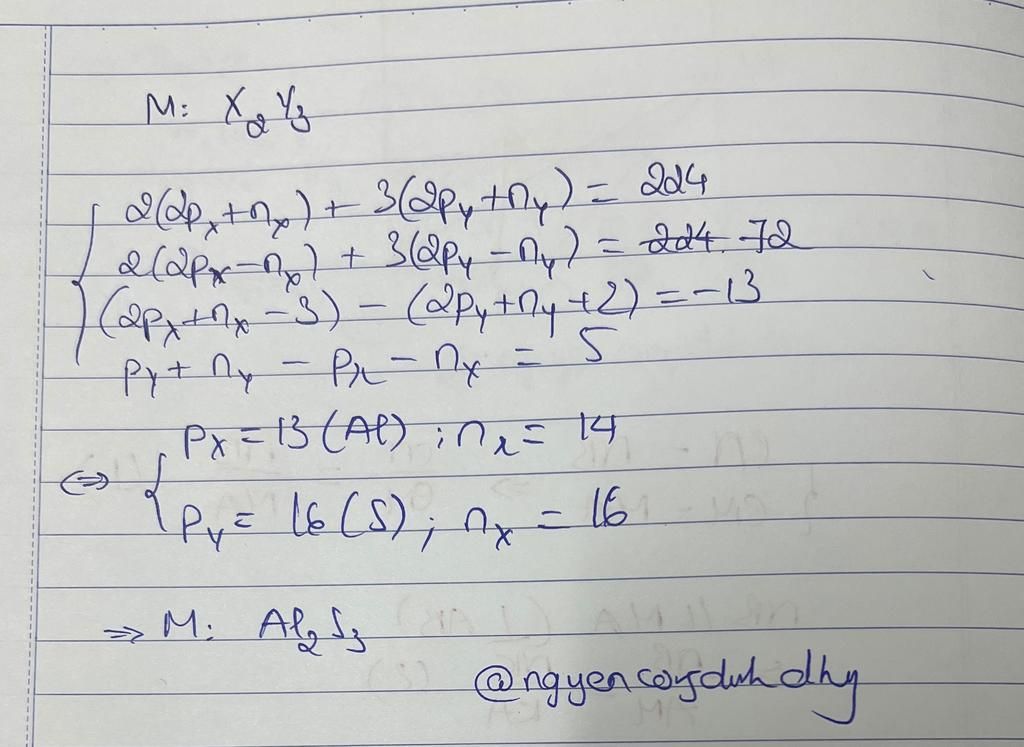 M: X₂Y₃
2(2pₓ+nₓ) + 3(2p_Y+n_Y) = 224
2(2pₓ-nₓ) + 3(2p_Y-n_Y) = 224 72
(2pₓ+nₓ-3) - (2p_Y+n_Y+2) = -13
p_Y + n_Y - pₓ - nₓ = 5
pₓ = 13 (Al) ; nₓ = 14
⇔ p_Y = 16 (S) ; nₓ = 16
⇒ M: Al₂S₃